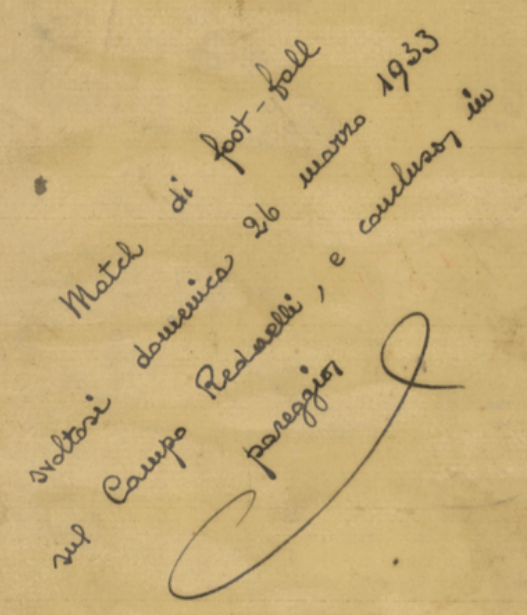 Match di foot-ball
svoltosi domenica 26 marzo 1933
sul Campo Redaelli, e concluso in
pareggio